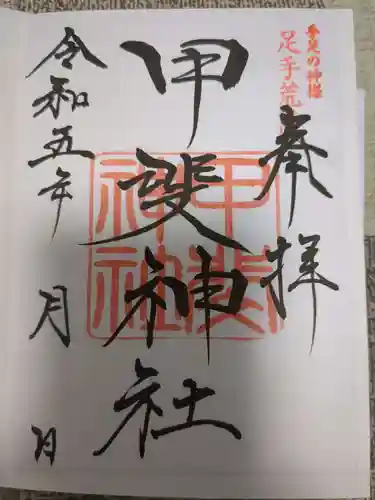 手足の神様
足手荒
奉拝
甲斐神社
甲斐神社
令和五年 月 日